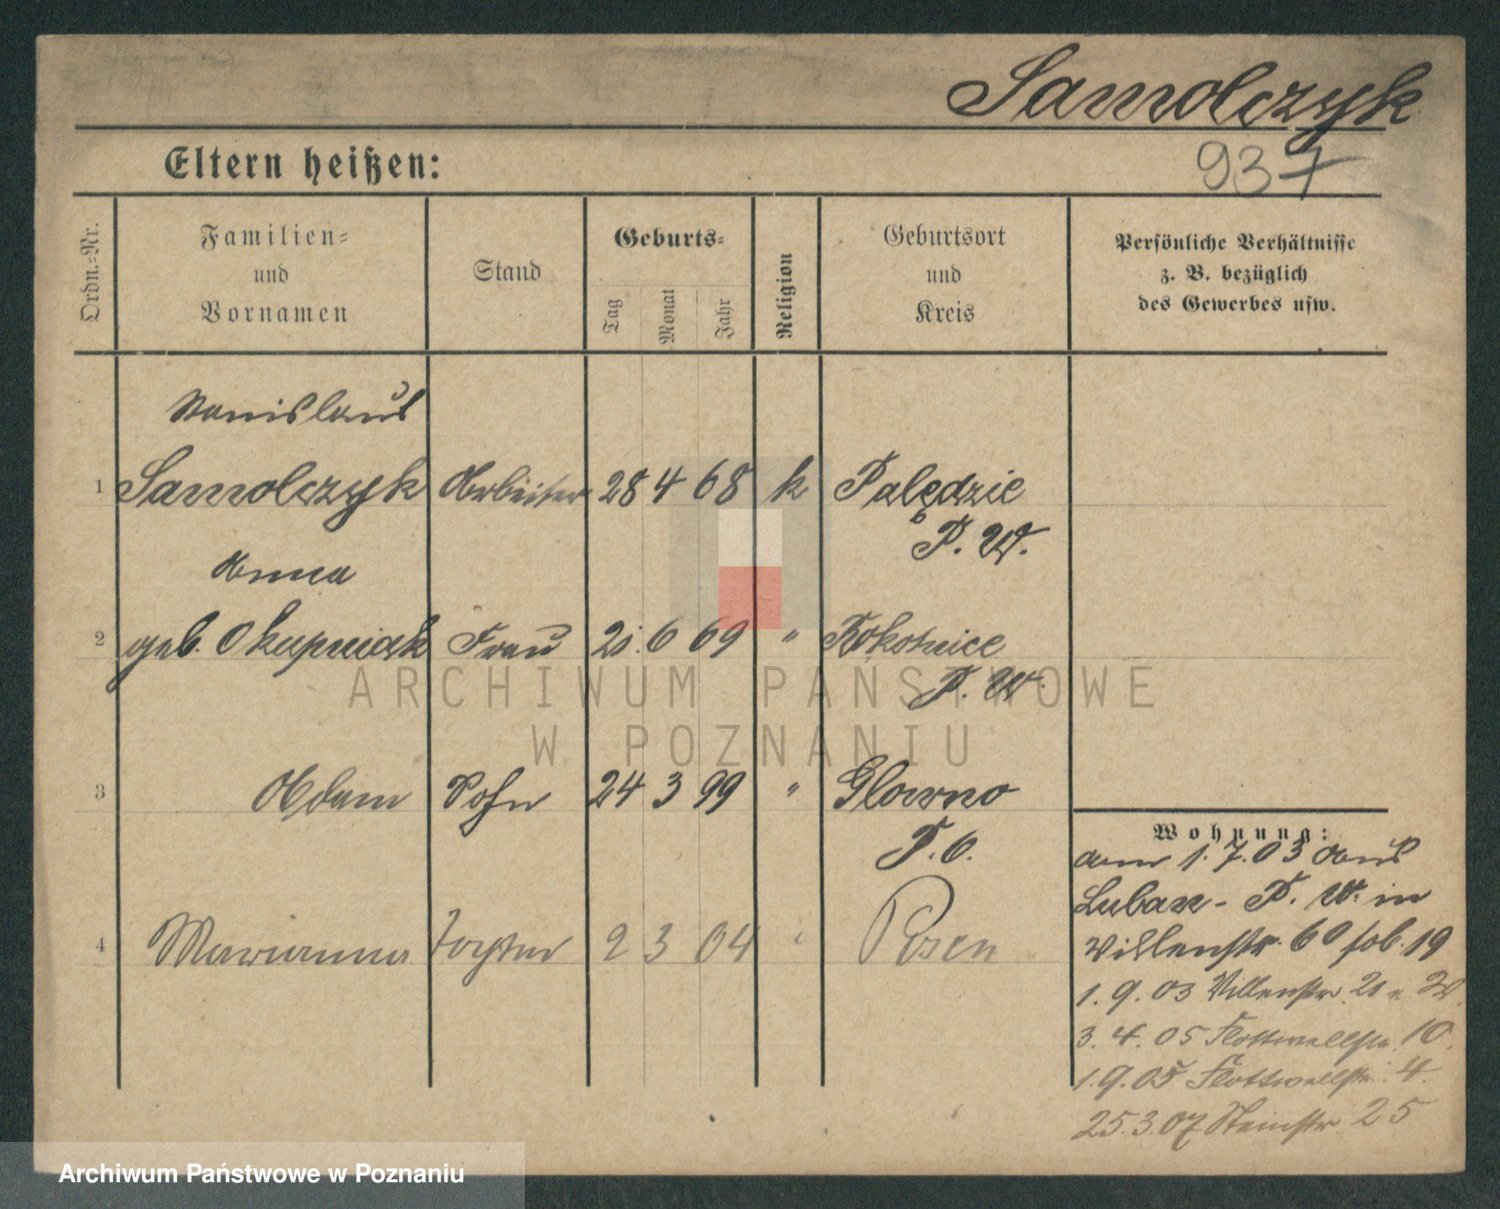 Samolczyk
Eltern heißen:
937
Ordn.=Nr.
Familien=
und
Vornamen
Stand
Geburts=
Tag
Monat
Jahr
Religion
Geburtsort
und
Kreis
Persönliche Verhältnisse
z. B. bezüglich
des Gewerbes usw.
Stanislaus
1 Samolczyk Arbeiter 28 4 68 k Palędzie
P. W.
Anna
2 geb. Okupniak Frau 6 69 " Rokotnice
P. W.
3 Adam Sohn 24 3 99 " Glowno
P. O.
4 Marianna Tochter 2 3 04 " Posen
Wohnung:
am 1.7.03 aus
Luban - P. W. in
Villenstr. 60 19
1.9.03 Villenstr. 21
3.4.05 Flottwellstr. 10.
1.9.05 Flottwellstr. 4.
25.3.07 Steinstr. 25
ARCHIWUM PAŃSTWOWE
W POZNANIU
Archiwum Państwowe w Poznaniu